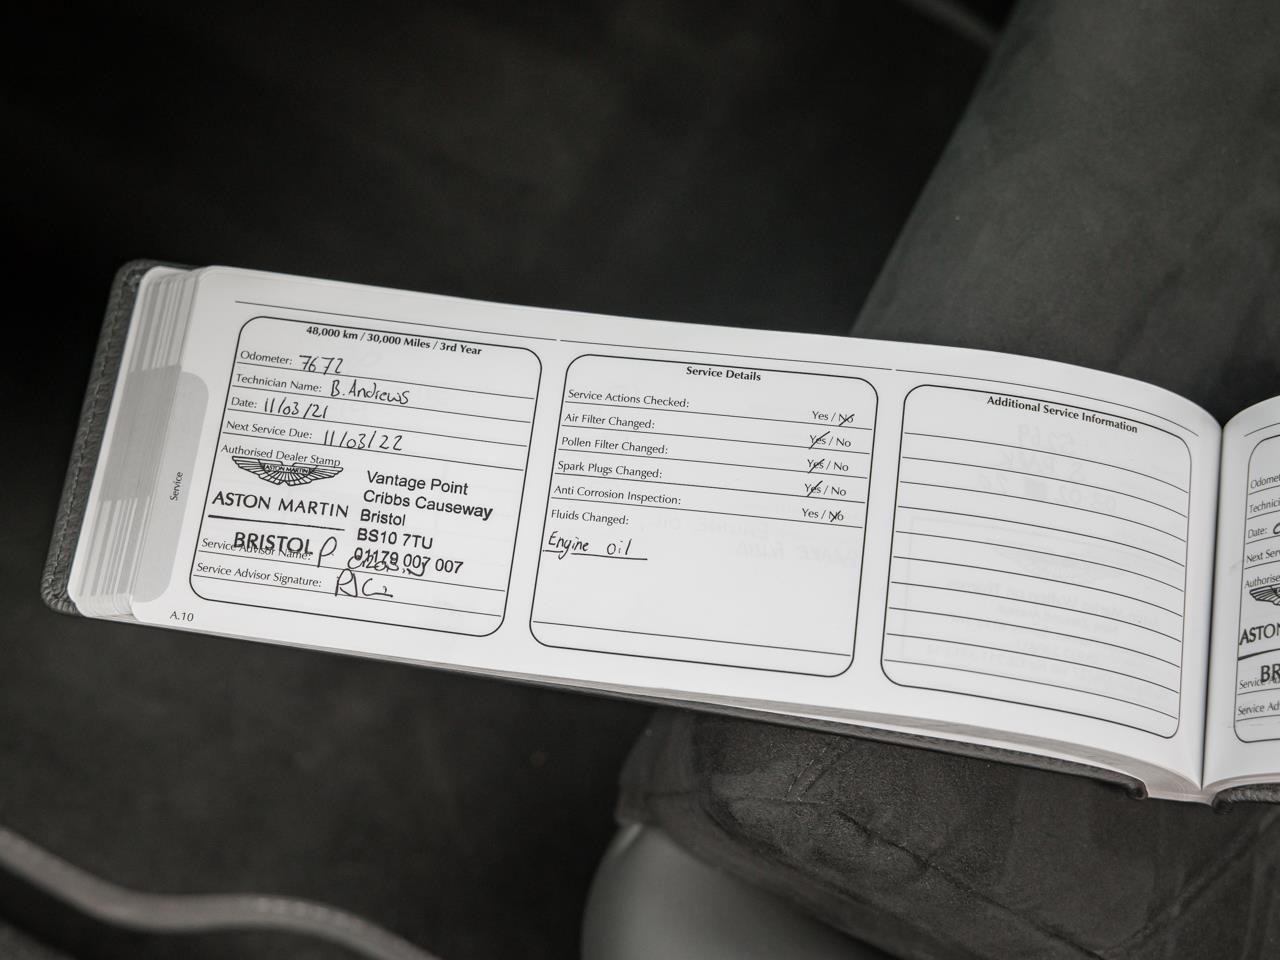 48,000 km / 30,000 Miles / 3rd Year
Odometer: 7672
Technician Name: B. Andrews
Date: 11/03/21
Next Service Due: 11/03/22
Authorised Dealer Stamp
ASTON MARTIN
ASTON MARTIN
BRISTOL
Vantage Point
Cribbs Causeway
Bristol
BS10 7TU
01179 007 007
Service Advisor Name: P
Service Advisor Signature:
A.10
Service
Service Details
Service Actions Checked: Yes / No
Air Filter Changed: Yes / No
Pollen Filter Changed: Yes / No
Spark Plugs Changed: Yes / No
Anti Corrosion Inspection: Yes / No
Fluids Changed:
Engine oil
Additional Service Information
Odome
Technici
Date:
Next Serv
Authorise
ASTON
BR
Service Ad
Service Ad